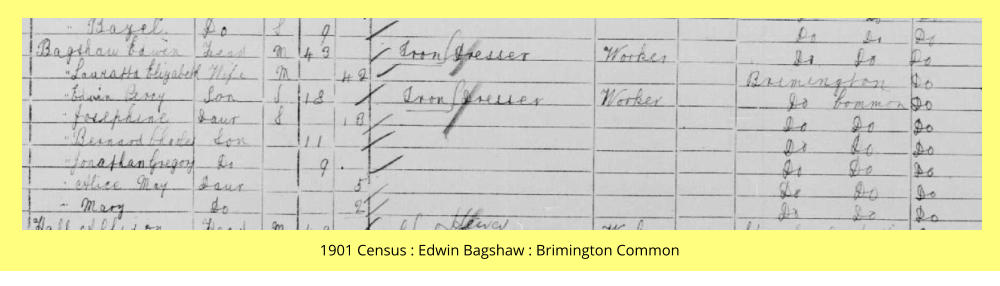 " Bazel Do S 9 Do Do Do
Bagshaw Edwin Head M 43 Iron Dresser Worker Do Do Do
" Lauratta Elizabeth Wife M 42 Brimington Do
" Edwin Percy Son S 18 Iron Dresser Worker Do Common Do
" Josephine Daur S 13 Do Do Do
" Bernard Charles Son 11 Do Do Do
" Jonathan Gregory Do 9 Do Do Do
" Alice May Daur 5 Do Do Do
" Mary Do 2 Do Do Do
Hall Head M
1901 Census : Edwin Bagshaw : Brimington Common